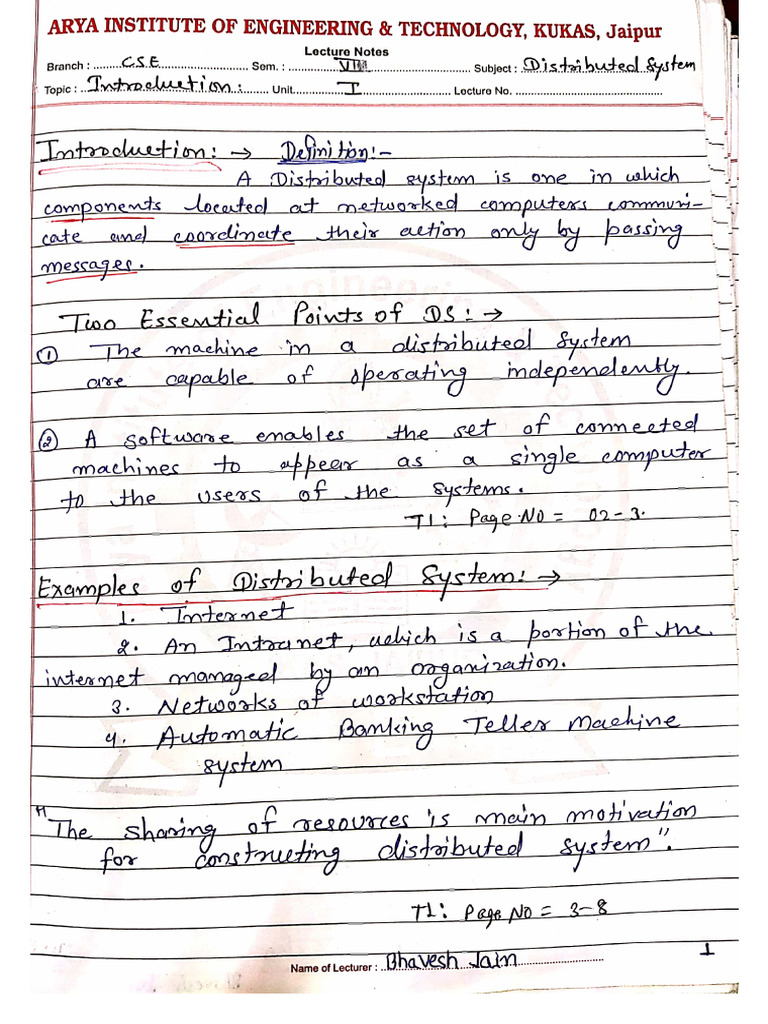 ARYA INSTITUTE OF ENGINEERING & TECHNOLOGY, KUKAS, Jaipur
Lecture Notes
Branch : CSE Sem. : VIII Subject : Distributed System
Topic : Introduction : Unit I Lecture No.
Introduction: → Definition:-
A Distributed system is one in which
components located at networked computers communi-
cate and coordinate their action only by passing
messages.
Two Essential Points of DS: →
① The machine in a distributed System
are capable of operating independently.
② A software enables the set of connected
machines to appear as a single computer
to the users of the systems.
T1: Page No = 02-3.
Examples of Distributed System: →
1. Internet
2. An Intranet, which is a portion of the
internet managed by an organization.
3. Networks of workstation
4. Automatic Banking Teller Machine
system
"The sharing of resources is main motivation
for constructing distributed system".
T1: Page No = 3-8
Name of Lecturer : Bhavesh Jain 1